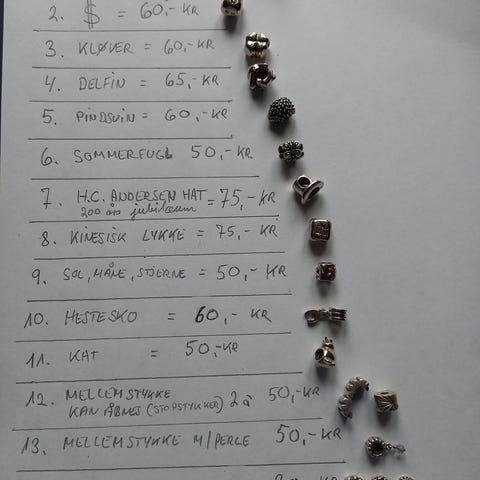 2. $ = 60,- KR
3. KLØVER = 60,- KR
4. DELFIN = 65,- KR
5. PINDSVIN = 60,- KR
6. SOMMERFUGL 50,- KR
7. H.C. ANDERSEN HAT = 75,- KR
200 års jubilæum
8. KINESISK LYKKE = 75,- KR
9. SOL, MÅNE, STJERNE = 50,- KR
10. HESTESKO = 60,- KR
11. KAT = 50,- KR
12. MELLEMSTYKKE
KAN ÅBNES (STOPSTYKKER) 2 á 50,- KR
13. MELLEMSTYKKE M/PERLE 50,- KR